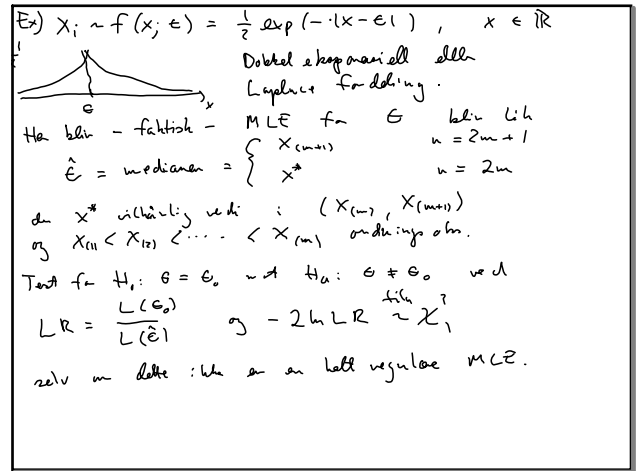 Ex) Xi ~ f(x; θ) = 1/2 exp(-|x-θ|), x ∈ ℝ
1/2
Dobbel eksponensiell eller
Laplace fordeling.
θ x
Her blir - faktisk - MLE for θ blir lik
θ̂ = medianen = { X(m+1) n = 2m+1
X* n = 2m
der X* vilkårlig verdi i (X(m), X(m+1))
og X(1) < X(2) < ···· < X(n) ordnings obs.
Test for H0: θ = θ0 mot Ha: θ ≠ θ0 ved
LR = L(θ0) / L(θ̂) og -2 ln LR ~ χ²1
selv om dette ikke er en helt regulær MLE.